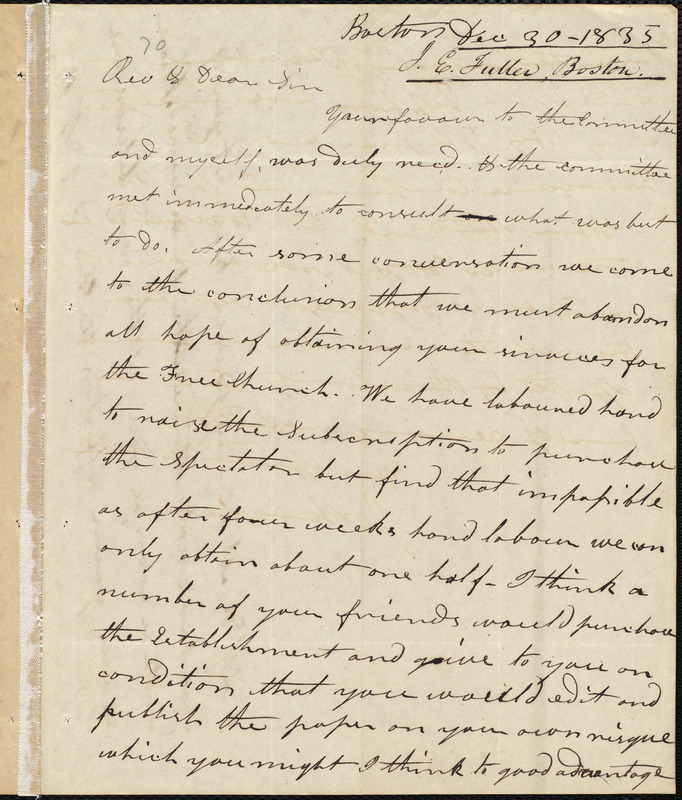 70
Boston Dec 30 - 1835
J. E. Fuller, Boston.
Rev & Dear Sir
Your favour to the Committee
and myself, was duly recd. & the committee
met immediately to consult what was best
to do. After some conversation we come
to the conclusion that we must abandon
all hope of obtaining your services for
the Free Church. We have laboured hard
to raise the Subscription to purchase
the Spectator but find that impossible
as after four weeks hard labour we can
only obtain about one half - I think a
number of your friends would purchase
the Establishment and give to you on
condition that you would edit and
publish the paper on your own risque
which you might I think to good advantage